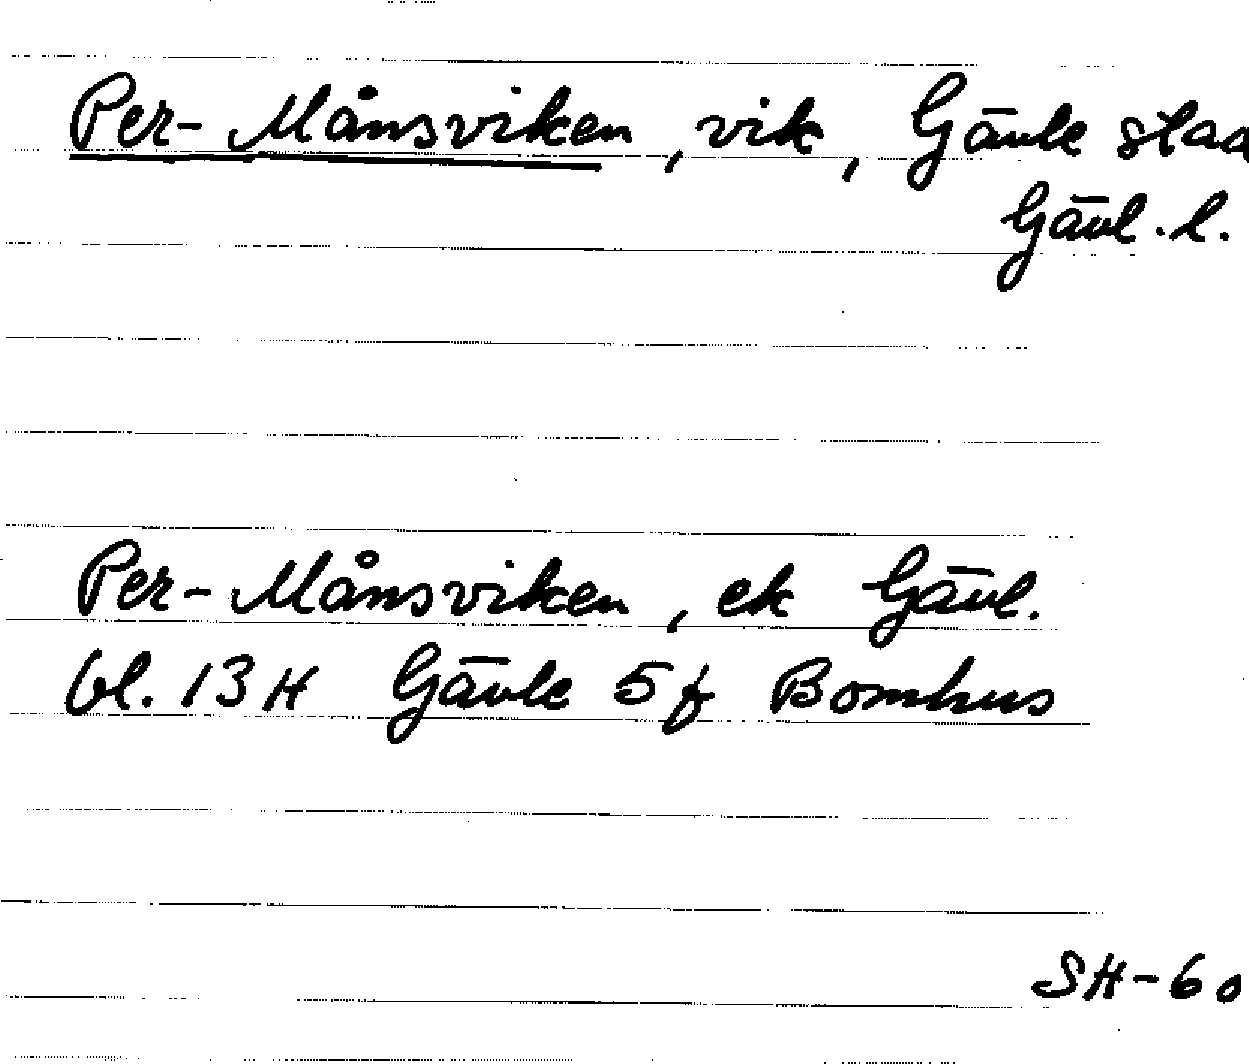 Per-Månsviken, vik, Gävle stad
Gävl. l.
Per-Månsviken, ek Gävl.
bl. 13H Gävle 5f Bomhus
SH-60